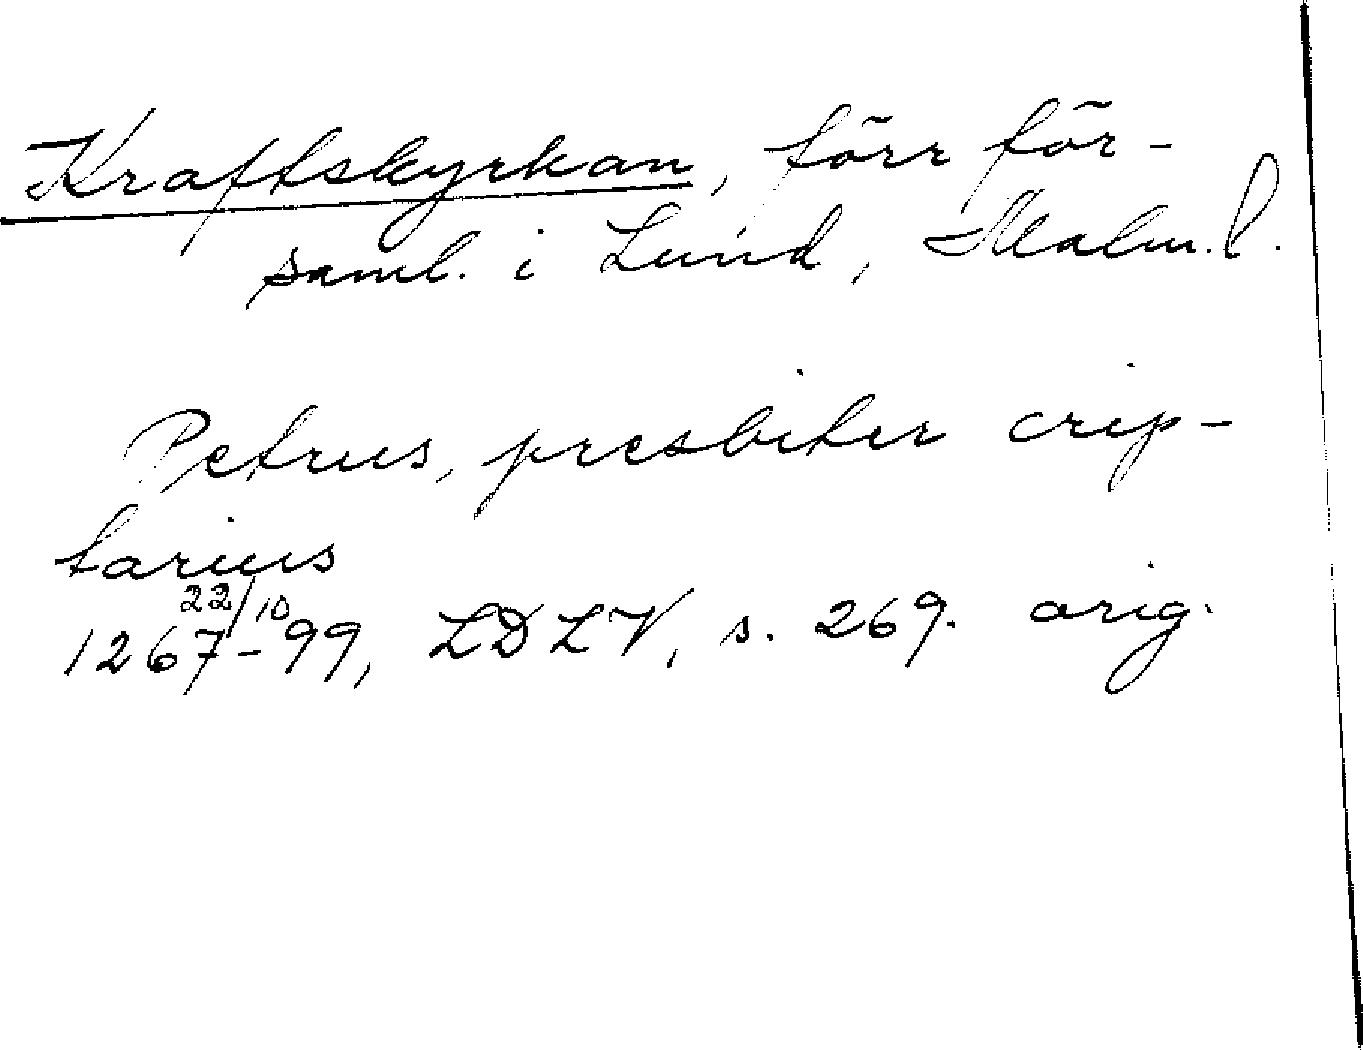 Kraftskyrkan, förr för-
saml. i Lund, Malm. l.
Petrus, presbiter crip-
tarius
22/10
1267-99, LDLV, s. 269. orig.